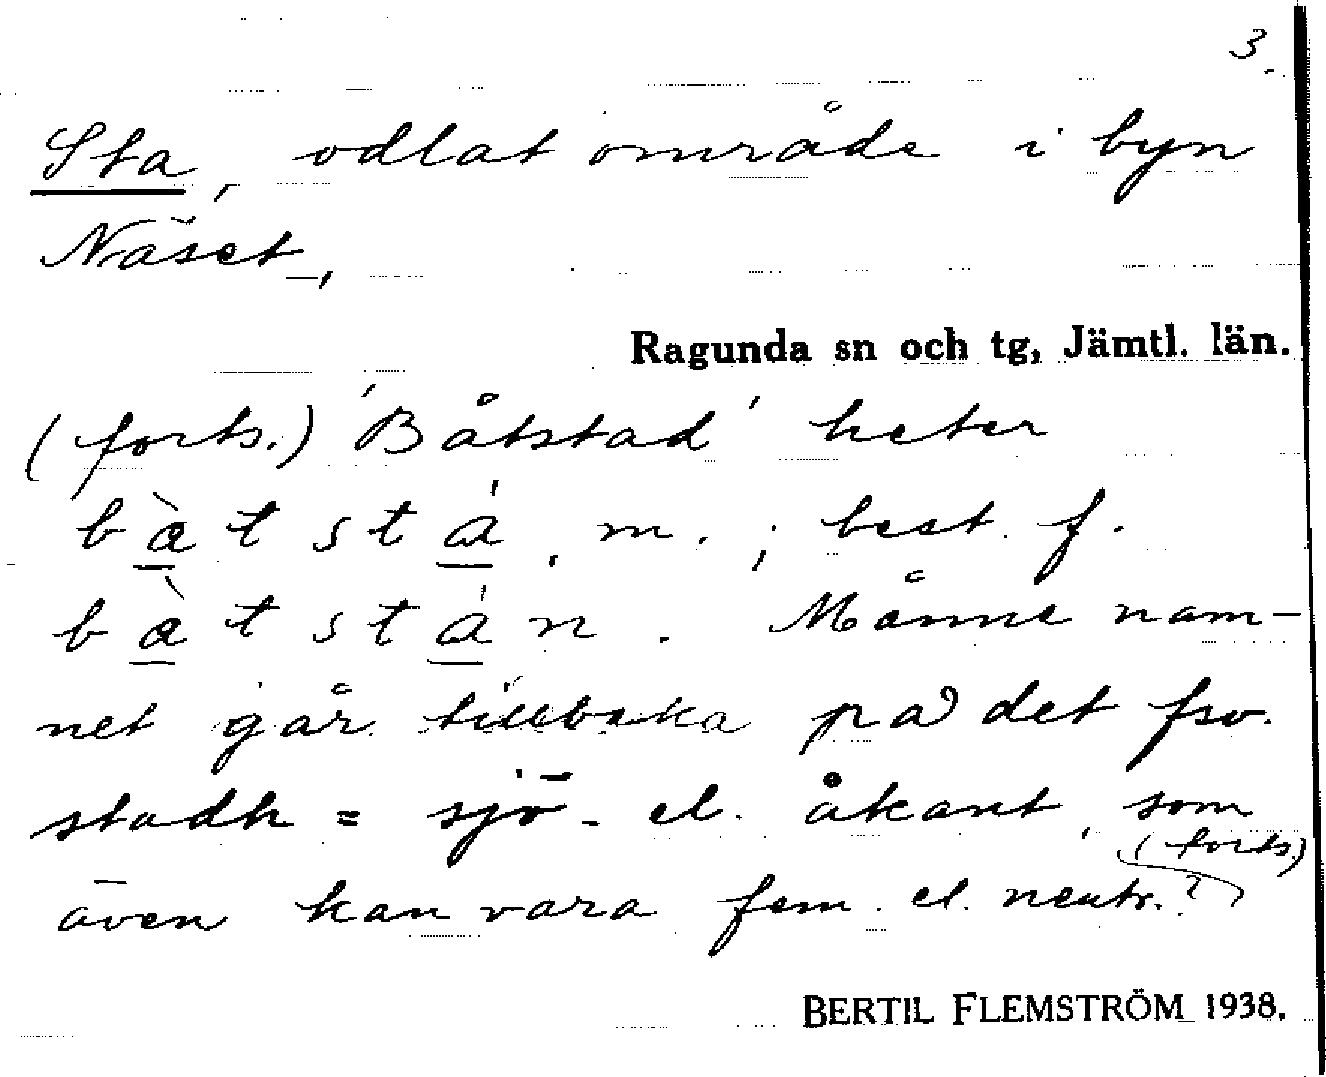 3.
Sta, odlat område i byn
Näset,
Ragunda sn och tg, Jämtl. län.
(forts.) 'Båtstad' heter
bàtstá, m.; best. f.
bàtstán. Månne nam-
net går tillbaka på det fsv.
stadh = sjö- el. åkant, som
(forts)
även kan vara fem. el. neutr.?
BERTIL FLEMSTRÖM 1938.